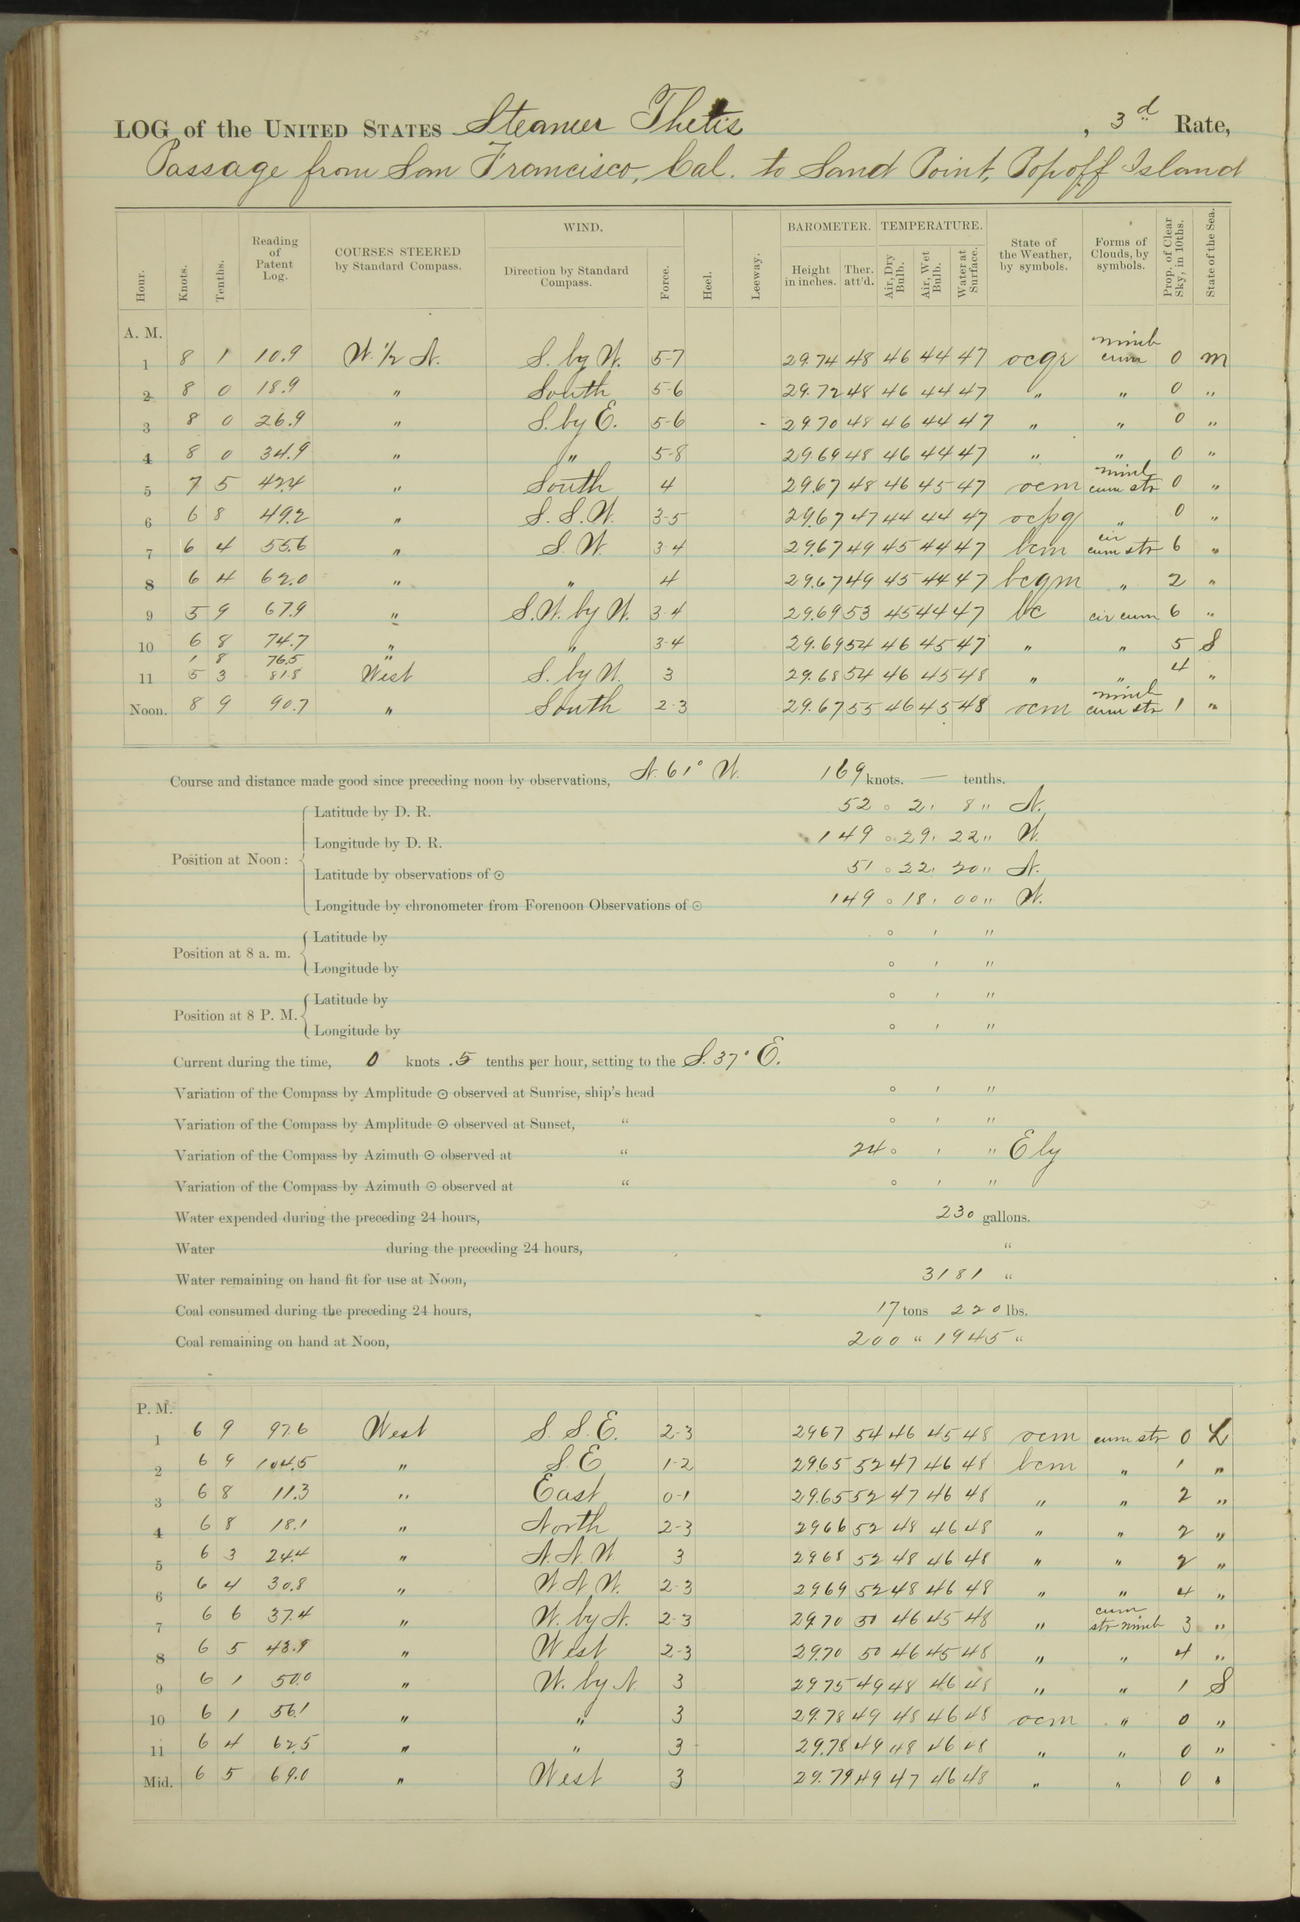 LOG of the UNITED STATES Steamer Thetis, 3d Rate,
Passage from San Francisco, Cal. to Sand Point, Popoff Island
Hour. Knots. Tenths. Reading of Patent Log. COURSES STEERED by Standard Compass. WIND. Direction by Standard Compass. Force. Heel. Leeway. BAROMETER. Height in inches. Ther. att'd. TEMPERATURE. Air, Dry Bulb. Air, Wet Bulb. Water at Surface. State of the Weather, by symbols. Forms of Clouds, by symbols. Prop. of Clear Sky, in 10ths. State of the Sea.
A. M.
1 8 1 10.9 W. 1/2 N. S. by W. 5-7 29.74 48 46 44 47 ocqr nimb cum 0 m
2 8 0 18.9 " South 5-6 29.72 48 46 44 47 " " 0 "
3 8 0 26.9 " S. by E. 5-6 29.70 48 46 44 47 " " 0 "
4 8 0 34.9 " " 5-8 29.69 48 46 44 47 " " 0 "
5 7 5 42.4 " South 4 29.67 48 46 45 47 ocm nimb cum str 0 "
6 6 8 49.2 " S. S. W. 3-5 29.67 47 44 44 47 ocpq " 0 "
7 6 4 55.6 " S. W. 3-4 29.67 49 45 44 47 bcm cir cum str 6 "
8 6 4 62.0 " " 4 29.67 49 45 44 47 bcqm " 2 "
9 5 9 67.9 " S.W. by W. 3-4 29.69 53 45 44 47 bc cir cum 6 "
10 6 8 74.7 " " 3-4 29.69 54 46 45 47 " " 5 S
1 8 76.5 "
11 5 3 81.8 West S. by W. 3 29.68 54 46 45 48 " " 4 "
Noon. 8 9 90.7 " South 2-3 29.67 55 46 45 48 ocm nimb cum str 1 "
Course and distance made good since preceding noon by observations, N. 61° W. 169 knots. — tenths.
Position at Noon:
Latitude by D. R. 52 ° 2 ' 8 " N.
Longitude by D. R. 149 ° 29 ' 22 " W.
Latitude by observations of ☉ 51 ° 22 ' 20 " N.
Longitude by chronometer from Forenoon Observations of ☉ 149 ° 18 ' 00 " W.
Position at 8 a. m.
Latitude by ° ' "
Longitude by ° ' "
Position at 8 P. M.
Latitude by ° ' "
Longitude by ° ' "
Current during the time, 0 knots .5 tenths per hour, setting to the S. 37° E.
Variation of the Compass by Amplitude ☉ observed at Sunrise, ship's head ° ' "
Variation of the Compass by Amplitude ☉ observed at Sunset, " ° ' "
Variation of the Compass by Azimuth ☉ observed at " 24 ° ' " Ely
Variation of the Compass by Azimuth ☉ observed at " ° ' "
Water expended during the preceding 24 hours, 230 gallons.
Water during the preceding 24 hours, "
Water remaining on hand fit for use at Noon, 3181 "
Coal consumed during the preceding 24 hours, 17 tons 220 lbs.
Coal remaining on hand at Noon, 200 " 1945 "
P. M.
1 6 9 97.6 West S. S. E. 2-3 29.67 54 46 45 48 ocm cum str 0 L
2 6 9 104.5 " S. E 1-2 29.65 52 47 46 48 bcm " 1 "
3 6 8 11.3 " East 0-1 29.65 52 47 46 48 " " 2 "
4 6 8 18.1 " North 2-3 29.66 52 48 46 48 " " 2 "
5 6 3 24.4 " N. N. W. 3 29.68 52 48 46 48 " " 2 "
6 6 4 30.8 " W. N. W. 2-3 29.69 52 48 46 48 " " 4 "
7 6 6 37.4 " W. by N. 2-3 29.70 50 46 45 48 " cum str nimb 3 "
8 6 5 43.9 " West 2-3 29.70 50 46 45 48 " " 4 "
9 6 1 50.0 " W. by N. 3 29.75 49 48 46 48 " " 1 S
10 6 1 56.1 " " 3 29.78 49 48 46 48 ocm " 0 "
11 6 4 62.5 " " 3 29.78 49 48 46 48 " " 0 "
Mid. 6 5 69.0 " West 3 29.79 49 47 46 48 " " 0 "